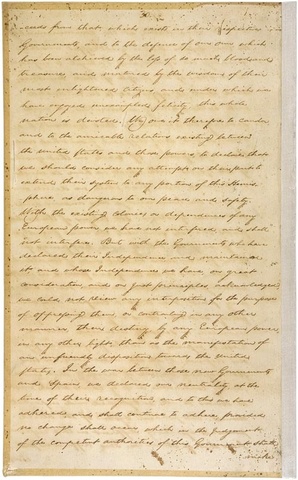 30
ceeds from that, which exists in their respective
Governments, and to the defence of our own, which
has been atchieved by the loss of so much blood and
treasure, and matured by the wisdom of their
most enlightened citizens, and under which we
have enjoyed unexampled felicity, this whole
nation is devoted. We owe it therefore to candor,
and to the amicable relations existing between
the united States and those powers, to declare that
we should consider any attempt on their part to
extend their system to any portion of this Hemis
phere, as dangerous to our peace and safety.
With the existing Colonies or dependencies of any
European power, we have not interfered, and shall
not interfere. But with the Governments who have
declared their Independence, and maintained
it, and whose Independence we have, on great
consideration, and on just principles, acknowledged,
we could not view any interposition for the purpose
of oppressing them, or controuling in any other
manner, their destiny, by any European power,
in any other light, than as the manifestation of
an unfriendly disposition towards the United
States. In the war between those new Governments
and Spain, we declared our neutrality, at the
time of their recognition, and to this we have
adhered, and shall continue to adhere, provided
no change shall occur, which in the judgement
of the competent authorities of this Government, shall
make